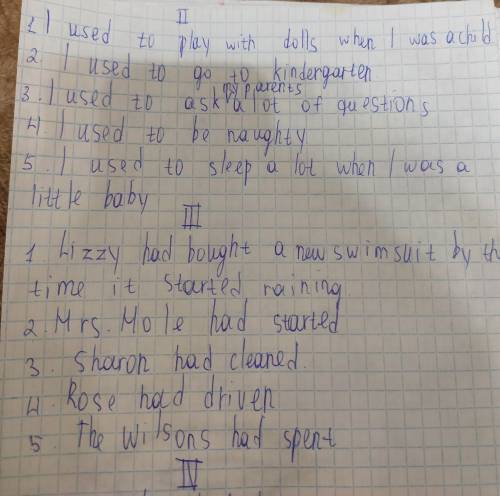 II
1. I used to play with dolls when I was a child
2. I used to go to kindergarten
my parents
3. I used to ask a lot of questions
4. I used to be naughty
5. I used to sleep a lot when I was a
little baby
III
1. Lizzy had bought a new swimsuit by th
time it started raining
2. Mrs. Mole had started
3. Sharon had cleaned.
4. Rose had driven
5. The Wilsons had spent
IV